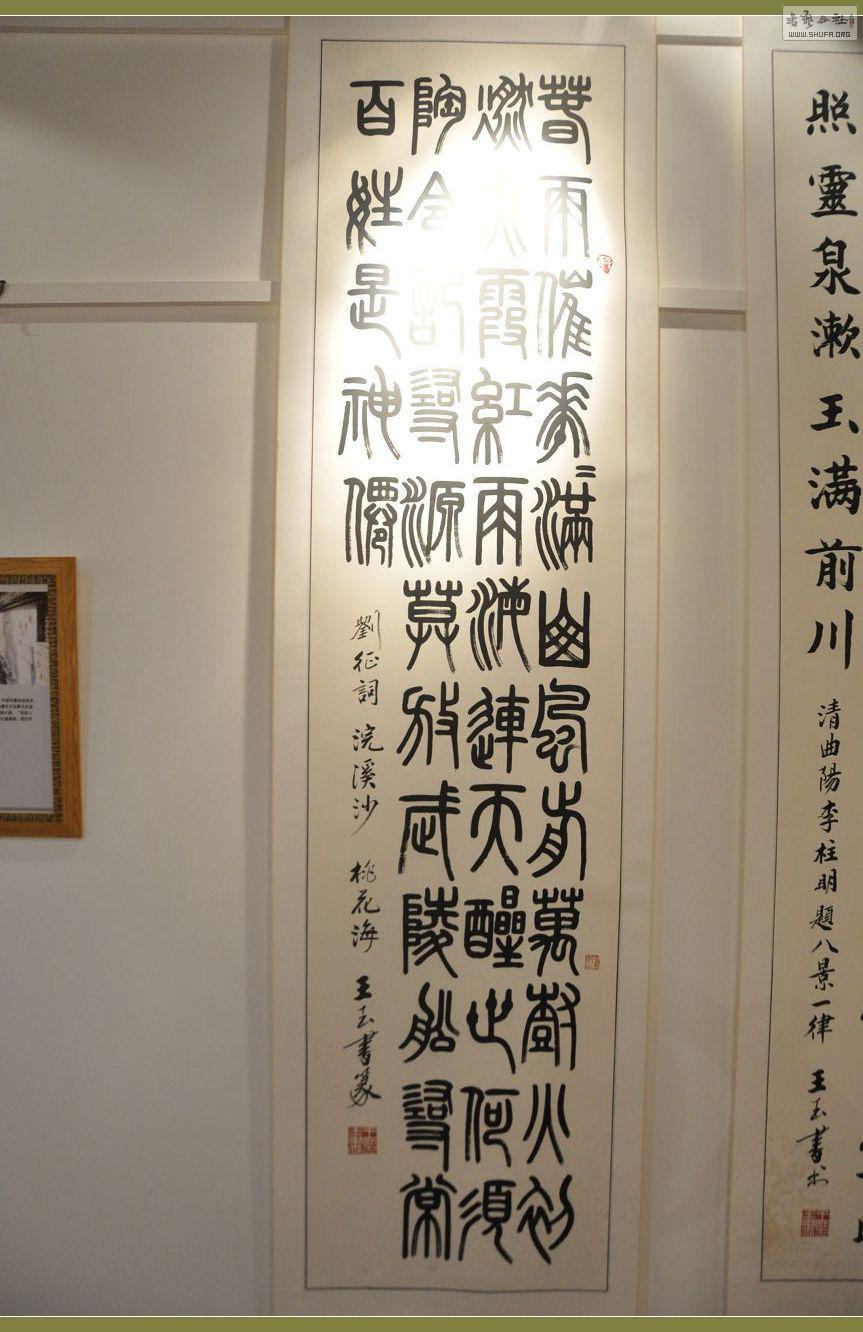 春雨催花滿齒𠙖前萬樹火初
燃天霞紅雨海連天醒也何須
陶令記尋源莫放武陵船尋常
百姓是神僊
劉征詞 浣溪沙 桃花海 王玉書篆
照靈泉漱玉满前川
清曲陽李柱明題八景一律 王玉書
WWW.SHUFA.ORG